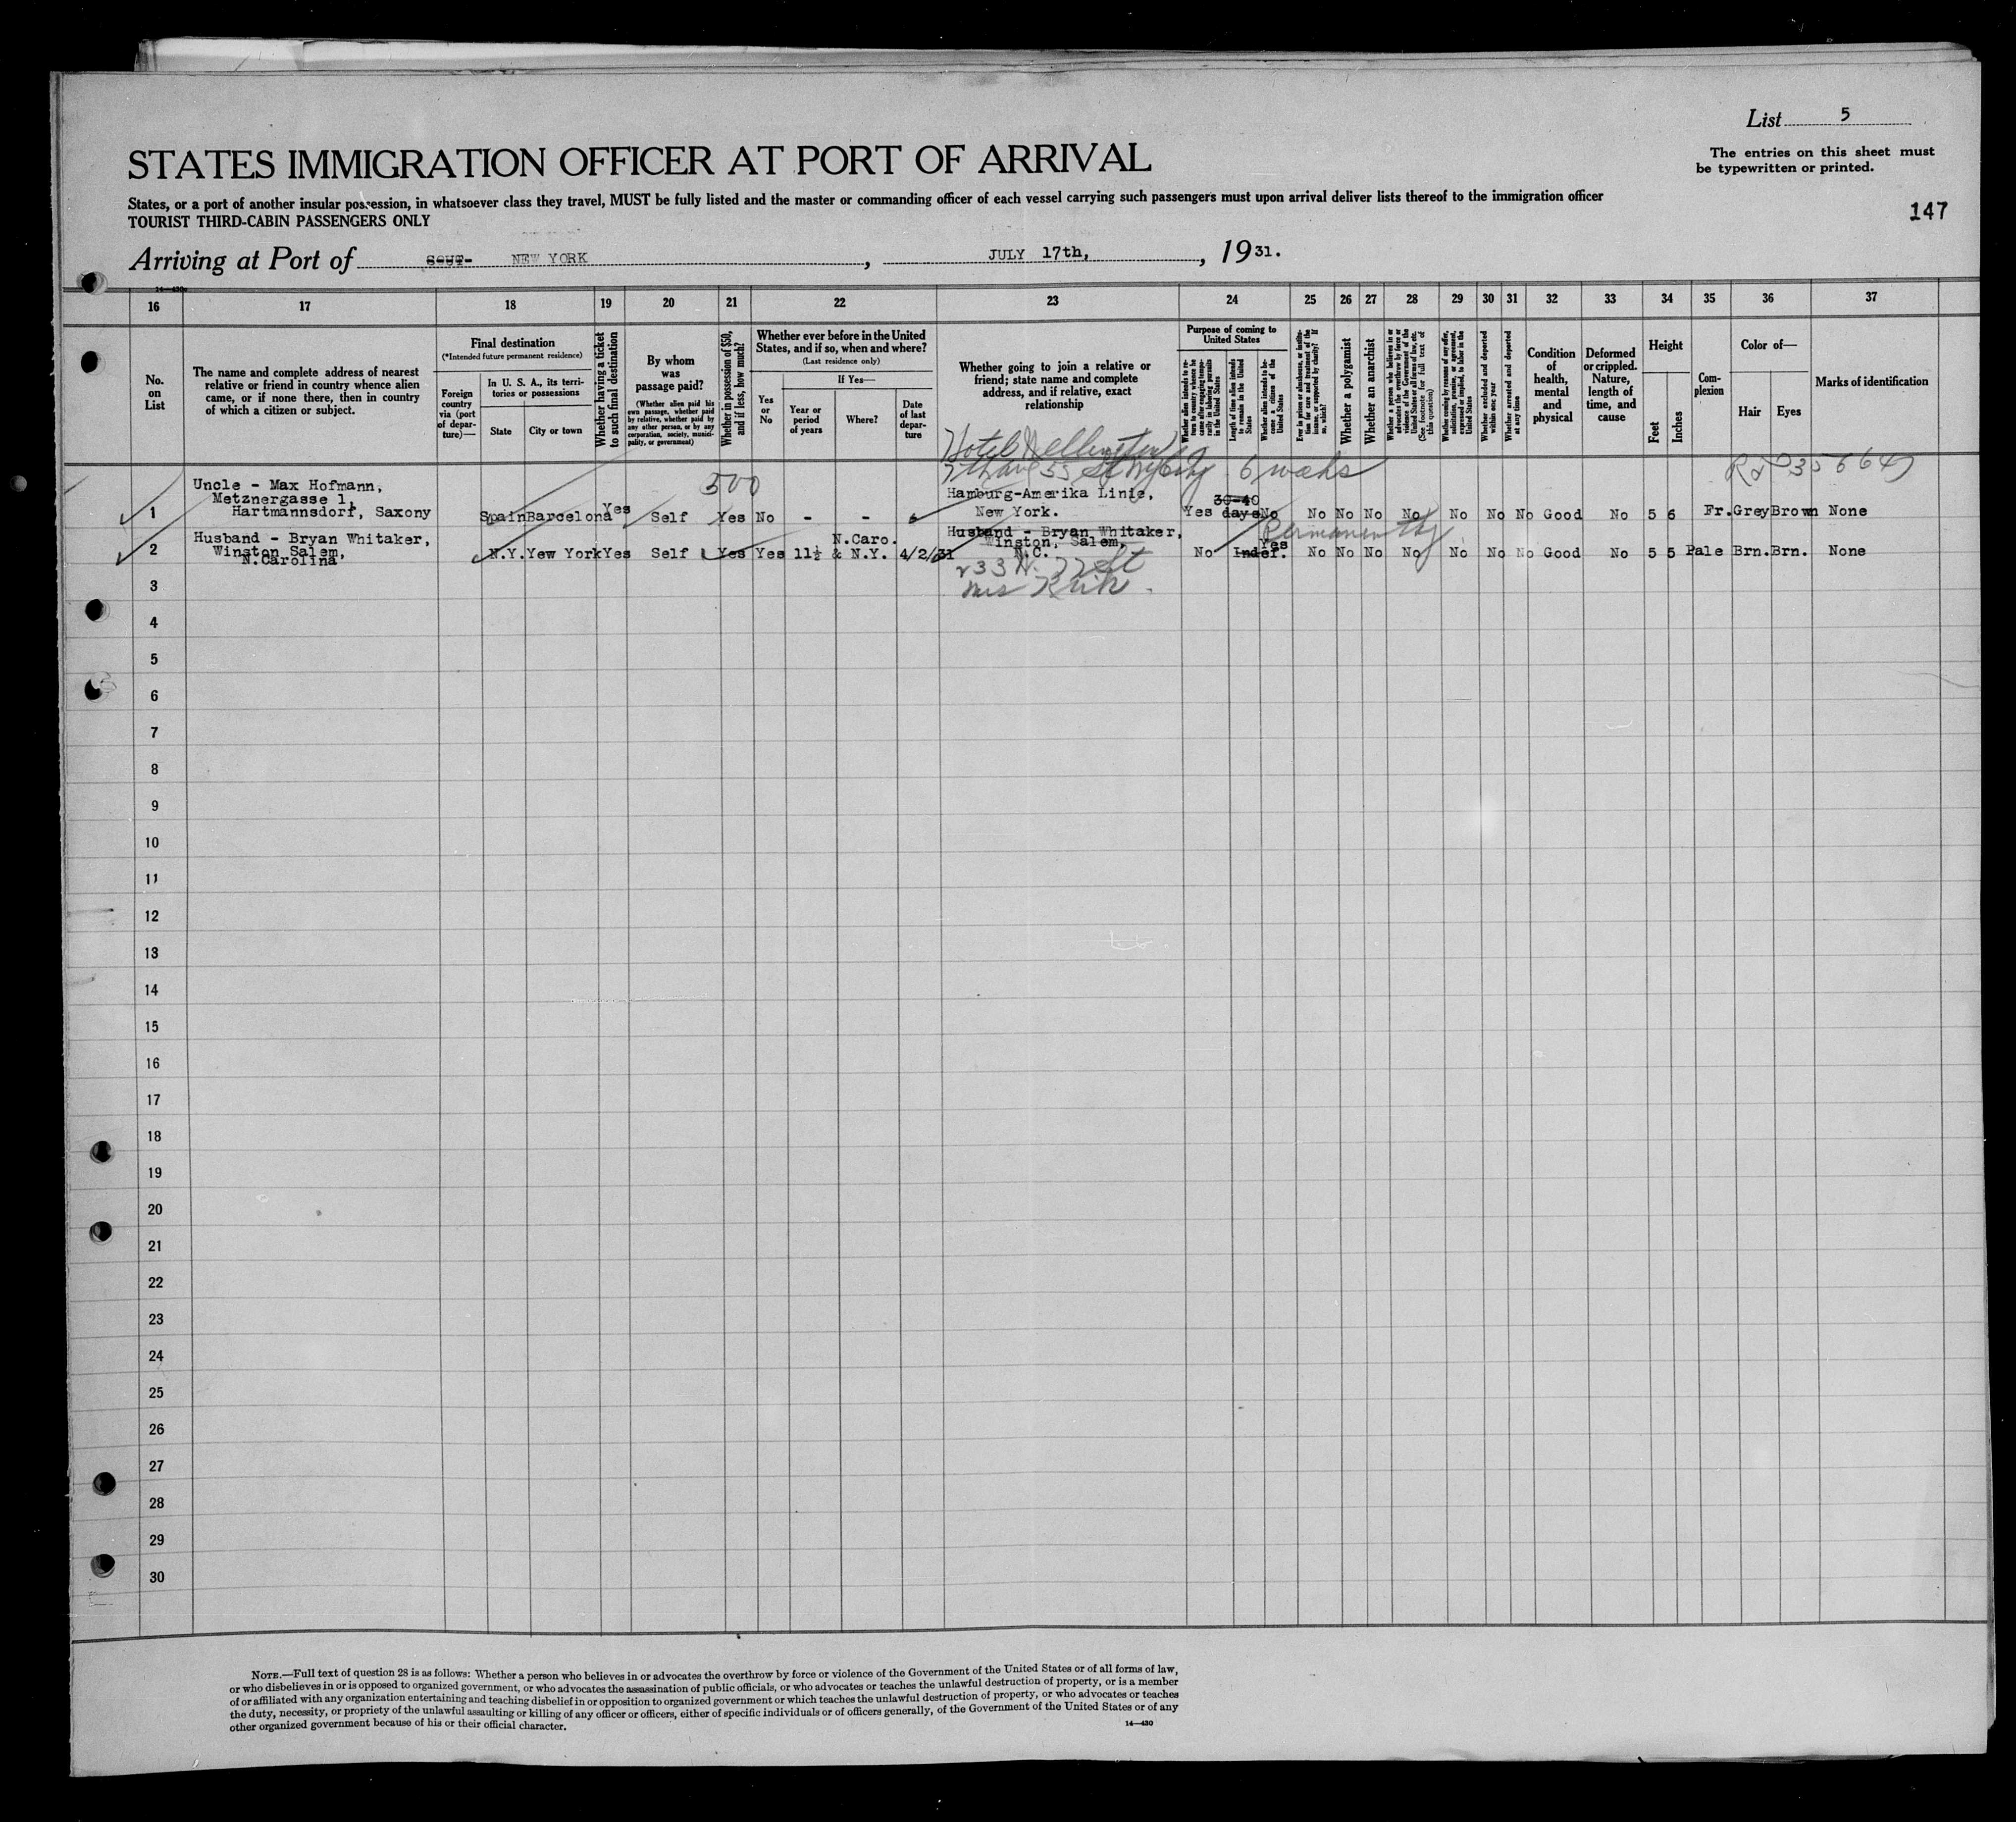 List 5
STATES IMMIGRATION OFFICER AT PORT OF ARRIVAL
The entries on this sheet must
be typewritten or printed.
States, or a port of another insular possession, in whatsoever class they travel, MUST be fully listed and the master or commanding officer of each vessel carrying such passengers must upon arrival deliver lists thereof to the immigration officer
TOURIST THIRD-CABIN PASSENGERS ONLY
147
Arriving at Port of SOUT- NEW YORK, JULY 17th, 1931.
14—430
16 17 18 19 20 21 22 23 24 25 26 27 28 29 30 31 32 33 34 35 36 37
No.
on
List
The name and complete address of nearest
relative or friend in country whence alien
came, or if none there, then in country
of which a citizen or subject.
Final destination
(*Intended future permanent residence)
Foreign
country
via (port
of depar-
ture)—
In U. S. A., its terri-
tories or possessions
State
City or town
Whether having a ticket
to such final destination
By whom
was
passage paid?
(Whether alien paid his
own passage, whether paid
by relative, whether paid by
any other person, or by any
corporation, society, munici-
pality, or government)
Whether in possession of $50,
and if less, how much?
Whether ever before in the United
States, and if so, when and where?
(Last residence only)
Yes
or
No
If Yes—
Year or
period
of years
Where?
Date
of last
depar-
ture
Whether going to join a relative or
friend; state name and complete
address, and if relative, exact
relationship
Purpose of coming to
United States
Whether alien intends to re-
turn to country whence he
came after engaging tempo-
rarily in laboring pursuits
in the United States
Length of time alien intends
to remain in the United
States
Whether alien intends to be-
come a citizen of the
United States
Ever in prison or almshouse, or institu-
tion for care and treatment of the
insane, or supported by charity? If
so, which?
Whether a polygamist
Whether an anarchist
Whether a person who believes in or
advocates the overthrow by force or
violence of the Government of the
United States or all forms of law, etc.
(See footnote for full text of
this question)
Whether coming by reason of any offer,
solicitation, promise, or agreement,
expressed or implied, to labor in the
United States
Whether excluded and deported
within one year
Whether arrested and deported
at any time
Condition
of
health,
mental
and
physical
Deformed
or crippled.
Nature,
length of
time, and
cause
Height
Feet
Inches
Com-
plexion
Color of—
Hair
Eyes
Marks of identification
Hotel Wellington
7th ave 55 St NY City 6 weeks
500
1 Uncle - Max Hofmann,
Metznergasse 1,
Hartmannsdorf, Saxony
Spain Barcelona Yes Self Yes No - -
Hamburg-Amerika Linie,
New York.
Yes 30-40
days No No No No No No No No Good No 5 6 Fr. Grey Brown None
2 Husband - Bryan Whitaker,
Winston Salem,
N.Carolina
N.Y. Yew York Yes Self Yes Yes 11½ N.Caro.
& N.Y. 4/2/31
Husband - Bryan Whitaker,
Winston, Salem,
N.C.
No Indef. Yes Permanently
No No No No No No No Good No 5 5 Pale Brn. Brn. None
3
4
5
6
7
8
9
10
11
12
13
14
15
16
17
18
19
20
21
22
23
24
25
26
27
28
29
30
NOTE.—Full text of question 28 is as follows: Whether a person who believes in or advocates the overthrow by force or violence of the Government of the United States or of all forms of law,
or who disbelieves in or is opposed to organized government, or who advocates the assassination of public officials, or who advocates or teaches the unlawful destruction of property, or is a member
of or affiliated with any organization entertaining and teaching disbelief in or opposition to organized government or which teaches the unlawful destruction of property, or who advocates or teaches
the duty, necessity, or propriety of the unlawful assaulting or killing of any officer or officers, either of specific individuals or of officers generally, of the Government of the United States or of any
other organized government because of his or their official character.
14—430